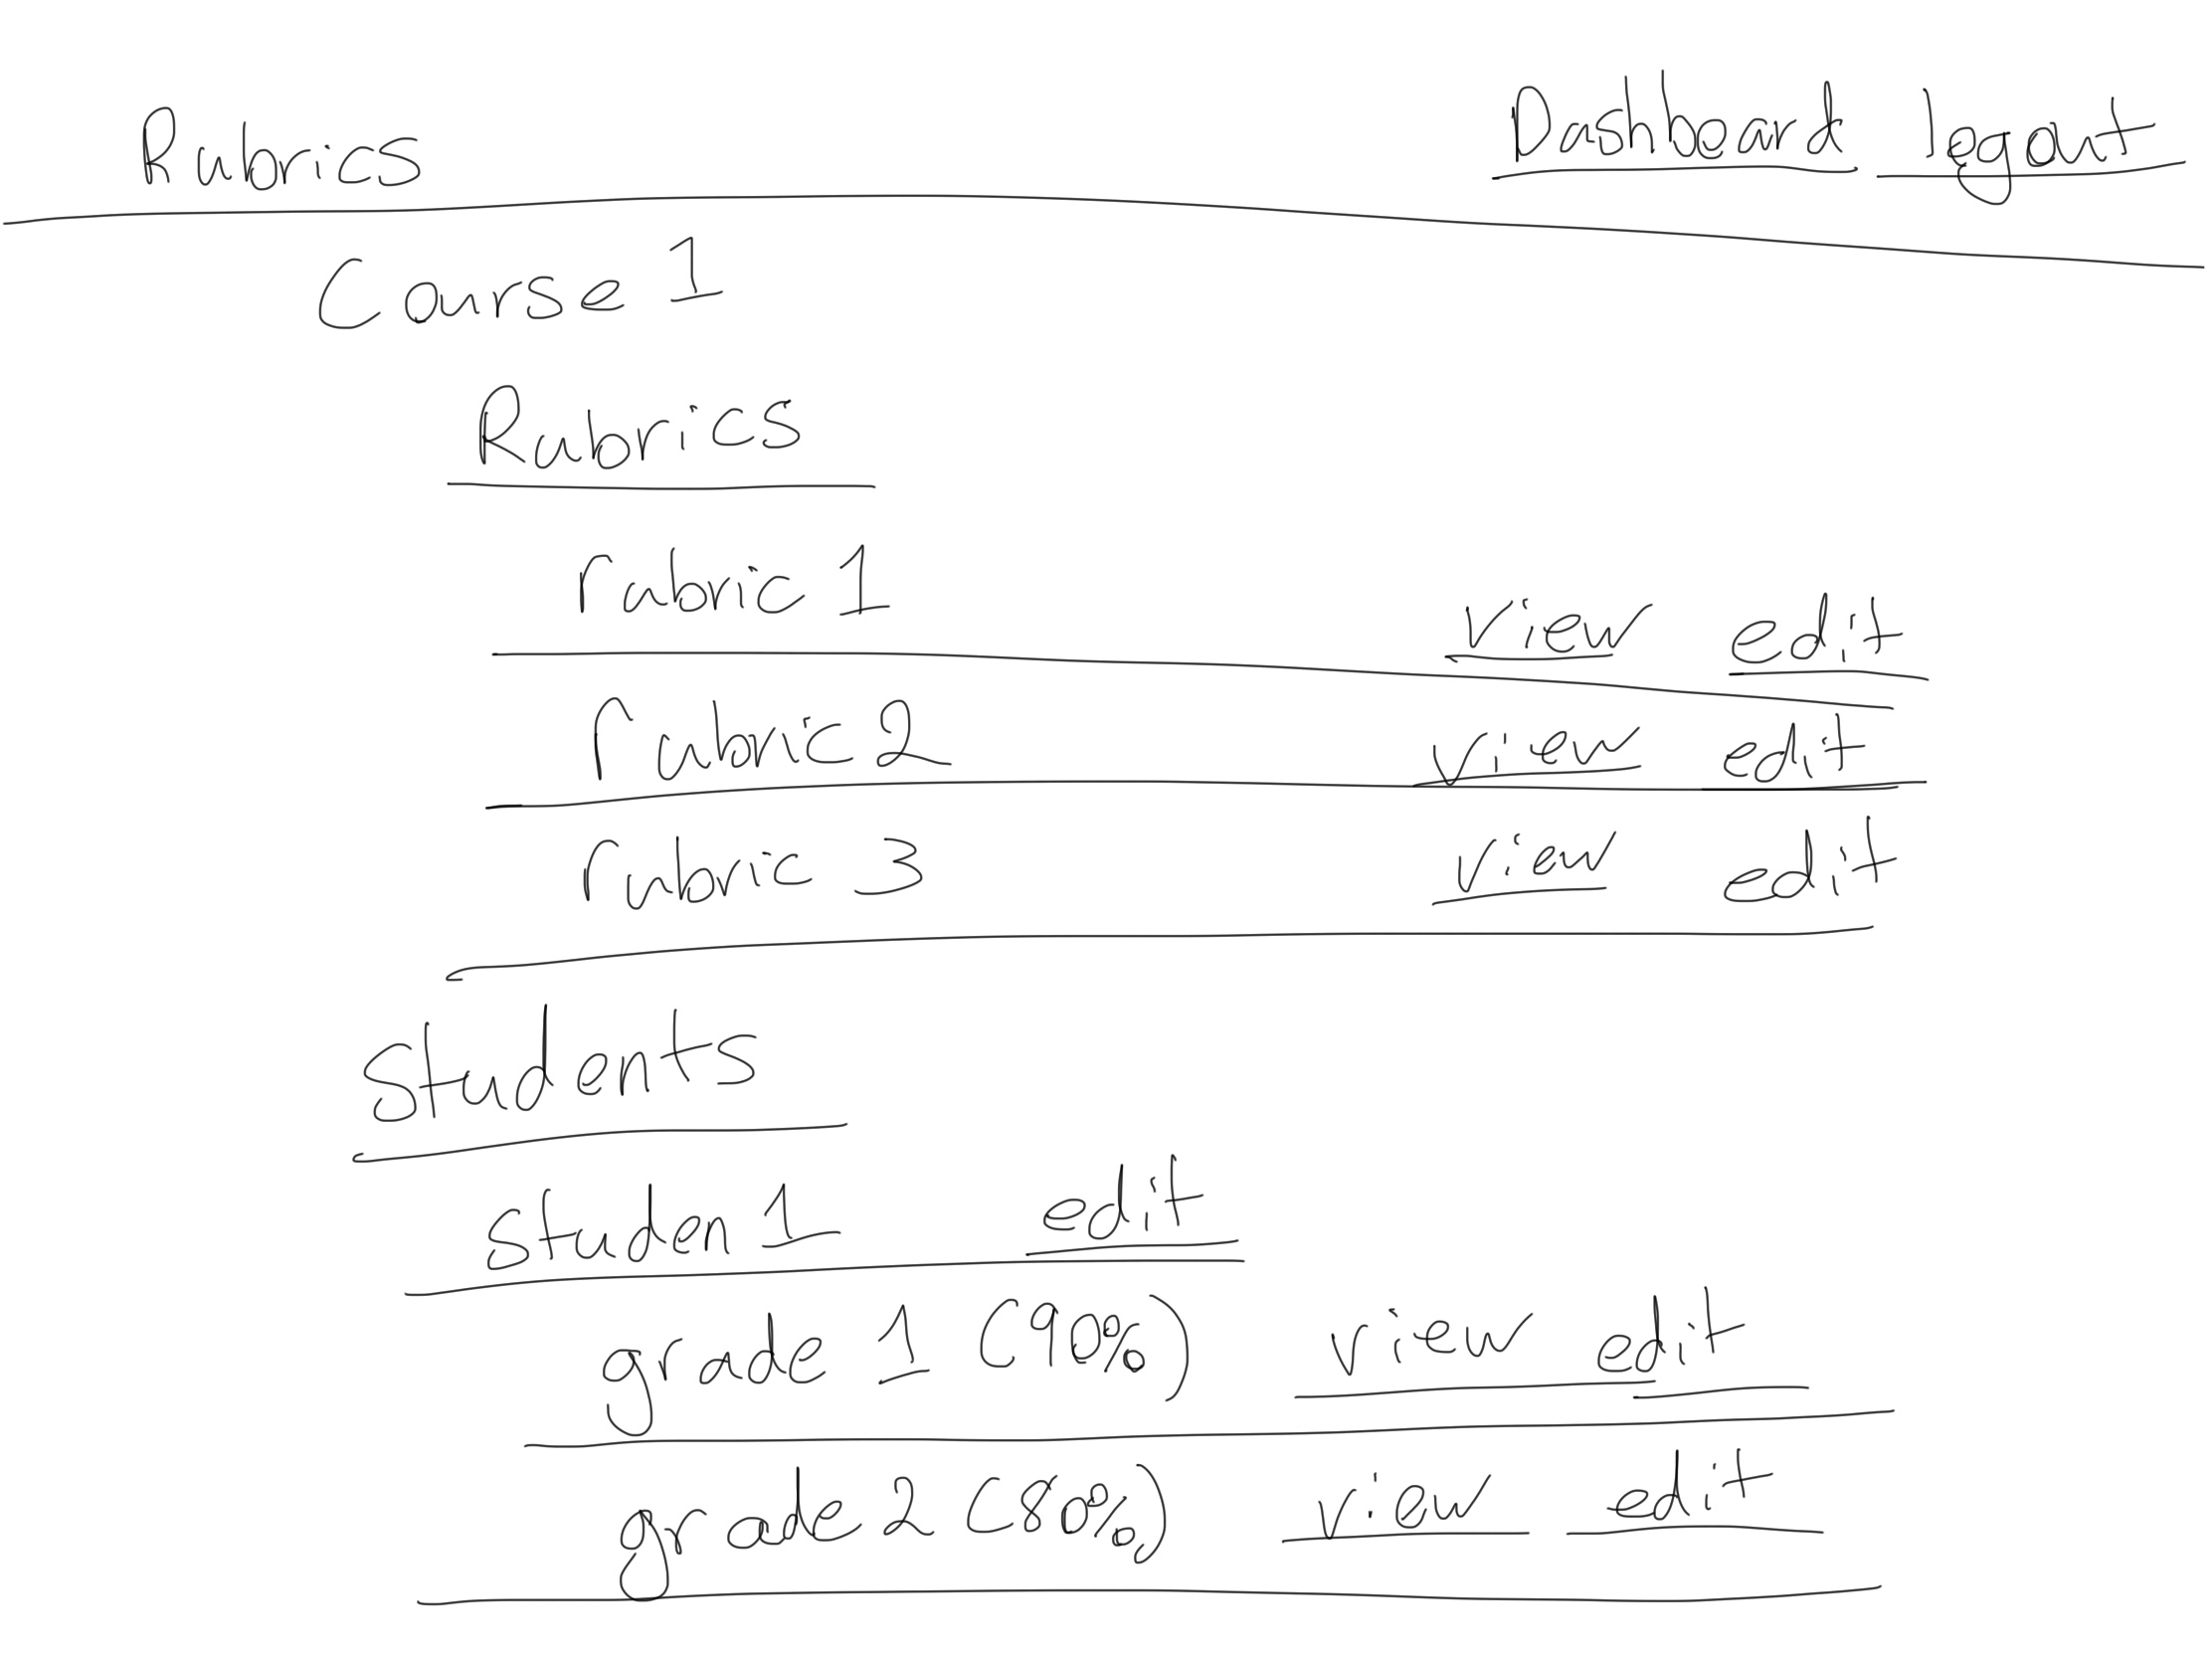 Rubrics Dashboard logout
Course 1
Rubrics
rubric 1 view edit
rubric 2 view edit
rubric 3 view edit
Students
studen 1 edit
grade 1 (90%) view edit
grade 2 (80%) view edit